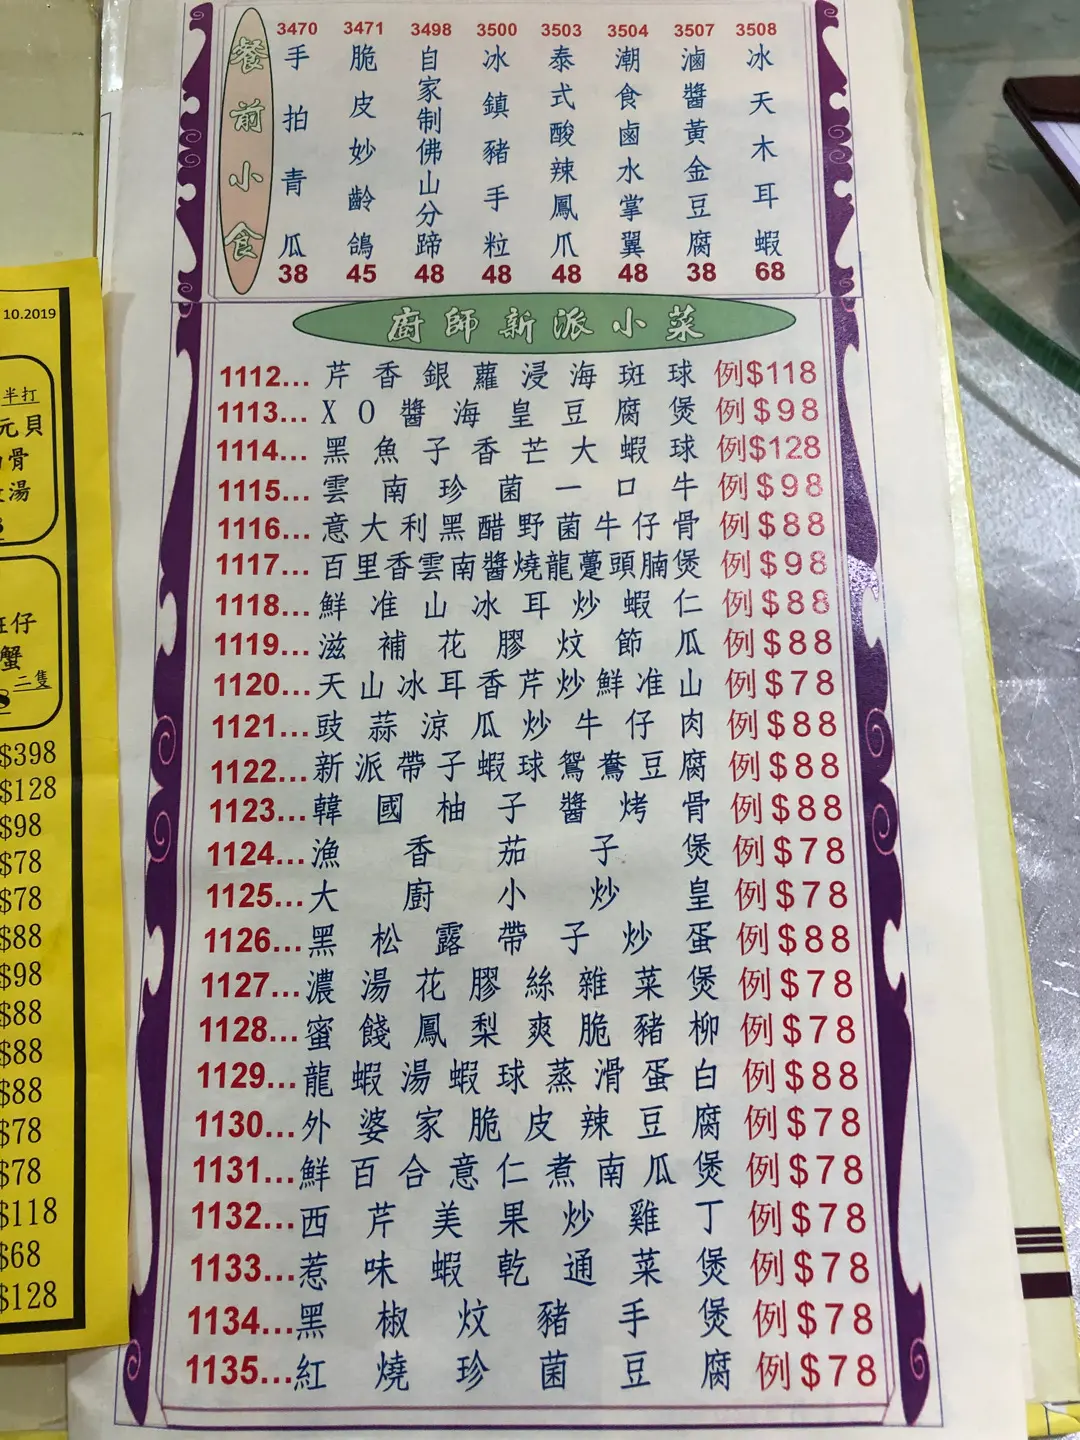 餐前小食
3470 3471 3498 3500 3503 3504 3507 3508
手拍青瓜
38
脆皮妙齡鴿
45
自家制佛山分蹄
48
冰鎮豬手粒
48
泰式酸辣鳳爪
48
潮食鹵水掌翼
48
滷醬黃金豆腐
38
冰天木耳蝦
68
廚師新派小菜
1112...芹香銀蘿浸海斑球 例$118
1113...XO醬海皇豆腐煲 例$98
1114...黑魚子香芒大蝦球 例$128
1115...雲南珍菌一口牛 例$98
1116...意大利黑醋野菌牛仔骨 例$88
1117...百里香雲南醬燒龍躉頭腩煲 例$98
1118...鮮准山冰耳炒蝦仁 例$88
1119...滋補花膠炆節瓜 例$88
1120...天山冰耳香芹炒鮮准山 例$78
1121...豉蒜涼瓜炒牛仔肉 例$88
1122...新派帶子蝦球鴛鴦豆腐 例$88
1123...韓國柚子醬烤骨 例$88
1124...漁香茄子煲 例$78
1125...大廚小炒皇 例$78
1126...黑松露帶子炒蛋 例$88
1127...濃湯花膠絲雜菜煲 例$78
1128...蜜餞鳳梨爽脆豬柳 例$78
1129...龍蝦湯蝦球蒸滑蛋白 例$88
1130...外婆家脆皮辣豆腐 例$78
1131...鮮百合意仁煮南瓜煲 例$78
1132...西芹美果炒雞丁 例$78
1133...惹味蝦乾通菜煲 例$78
1134...黑椒炆豬手煲 例$78
1135...紅燒珍菌豆腐 例$78
10.2019
半打
元貝
骨
湯
仔
蟹
二隻
$398
$128
$98
$78
$78
$88
$98
$88
$88
$88
$78
$78
$118
$68
$128